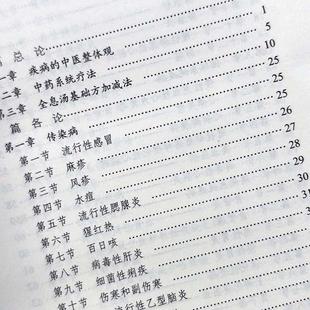 篇 总 论 1
一章 疾病的中医整体观 5
二章 中药系统疗法 10
第三章 全息汤基础方加减法 25
篇 各论 25
第一章 传染病 26
第一节 流行性感冒 27
第二节 麻疹 28
第三节 风疹 28
第四节 水痘 29
第五节 流行性腮腺炎 30
第六节 猩红热
第七节 百日咳
第八节 病毒性肝炎
第九节 细菌性痢疾
第十节 伤寒和副伤寒
流行性乙型脑炎